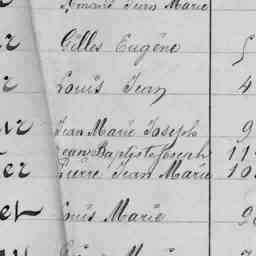 Jean Marie
r Gilles Eugène
r Louis Jean 4
ur Jean Marie Joseph 9
Jean Baptiste Joseph 11
er Pierre Jean Marie 10
et Louis Marie